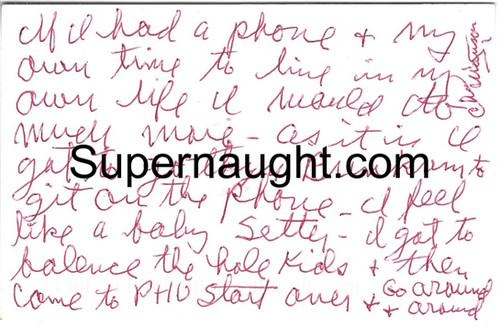 If I had a phone & my
own time to live in my
own life I would do
much more - as it is I
got to
Supernaught.com
to
git on the phone - I feel
like a baby setter - I got to
balence the hole kids & then
come to PHU start over & Go around
& around